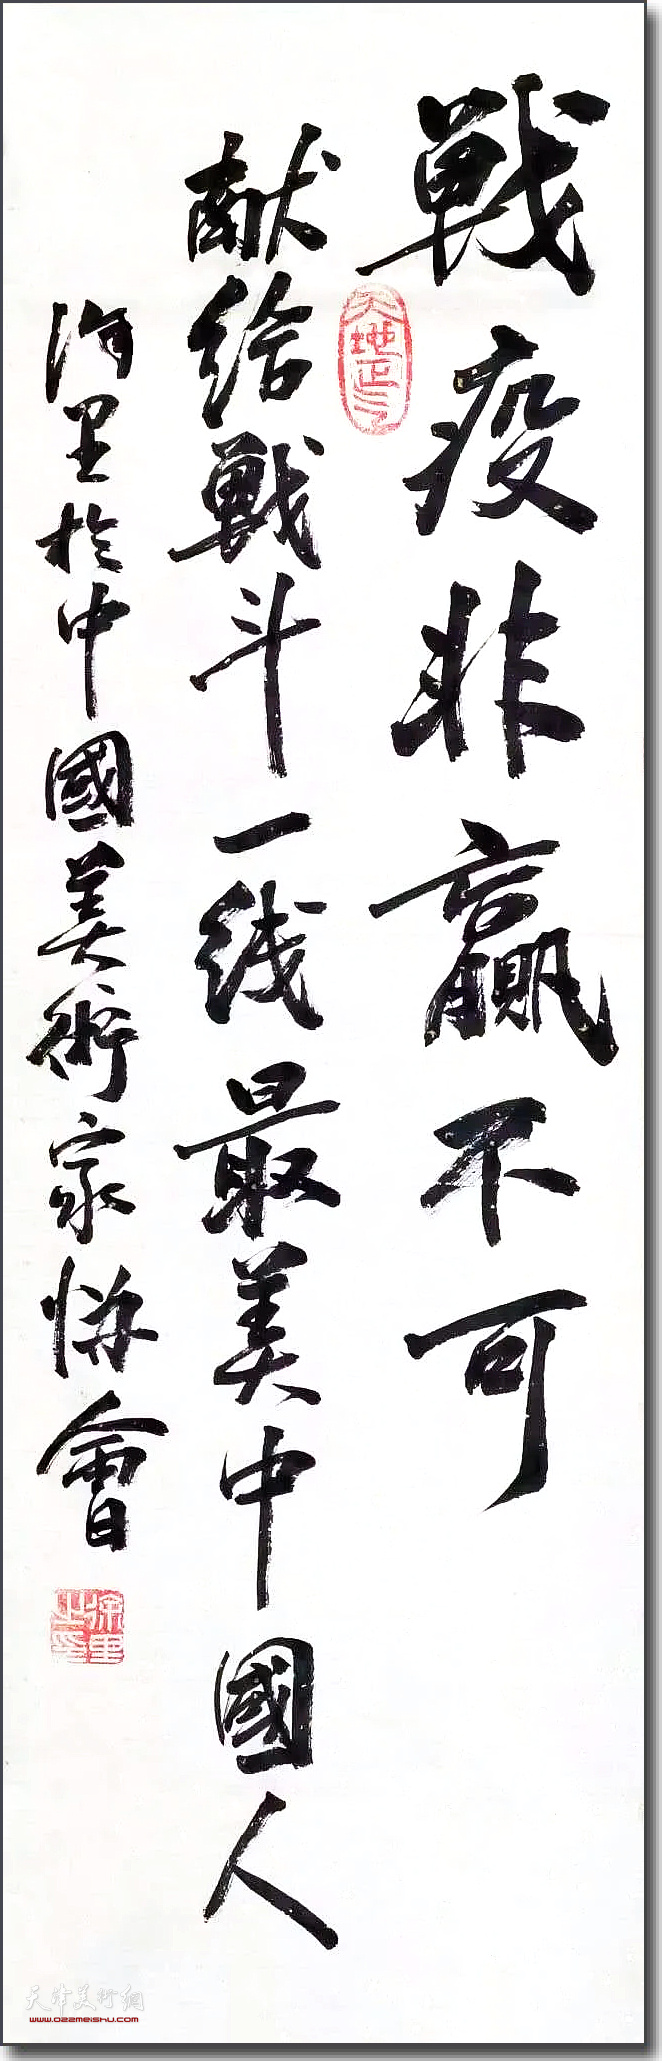 戰疫非贏不可
献给戰斗一线最美中國人
徐里於中國美術家協會
天地正气
徐里之印
天津美術網
www.022meishu.com